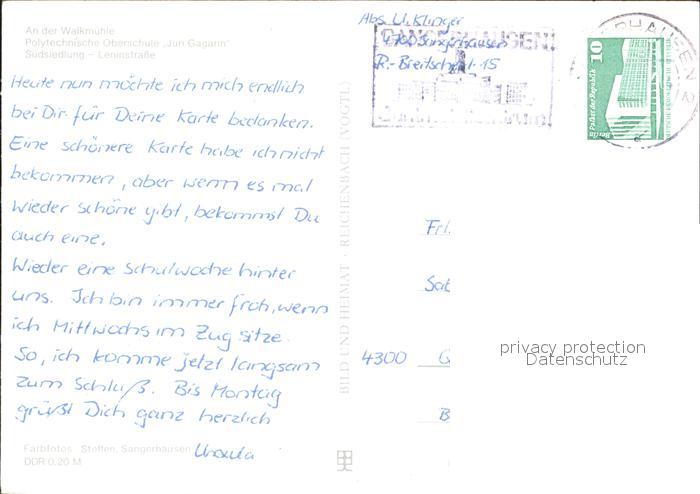 An der Walkmühle
Polytechnische Oberschule „Juri Gagarin"
Südsiedlung – Leninstraße
Heute nun möchte ich mich endlich
bei Dir für Deine Karte bedanken.
Eine schönere Karte habe ich nicht
bekommen, aber wenn es mal
wieder schöne gibt, bekommst Du
auch eine.
Wieder eine Schulwoche hinter
uns. Ich bin immer froh, wenn
ich Mittwochs im Zug sitze.
So, ich komme jetzt langsam
zum Schluß. Bis Montag
grüßt Dich ganz herzlich
Ursula
Farbfotos: Steffen, Sangerhausen
DDR 0,20 M
BILD UND HEIMAT · REICHENBACH (VOGTL)
Abs. U. Klinger
4700 Sangerhausen
R.-Breitscheid 15
SANGERHAUSEN
10
Palast der Republik
Berlin
2
Frl.
Sab
4300 Q
B
privacy protection
Datenschutz